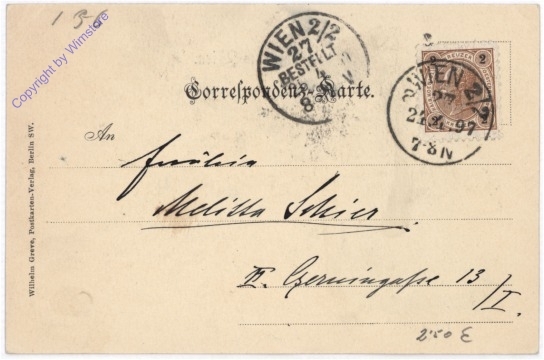 Copyright by Wimstore
WIEN 2/2
27
BESTELLT
Correspondenz-Karte.
2 KREUZER 2
WIEN 2/2
27
97
7-8N
An
Fräulein
Melitta Schier
II. Czerningaße 13
/I.
Wilhelm Greve, Postkarten-Verlag, Berlin SW.
2.50 €